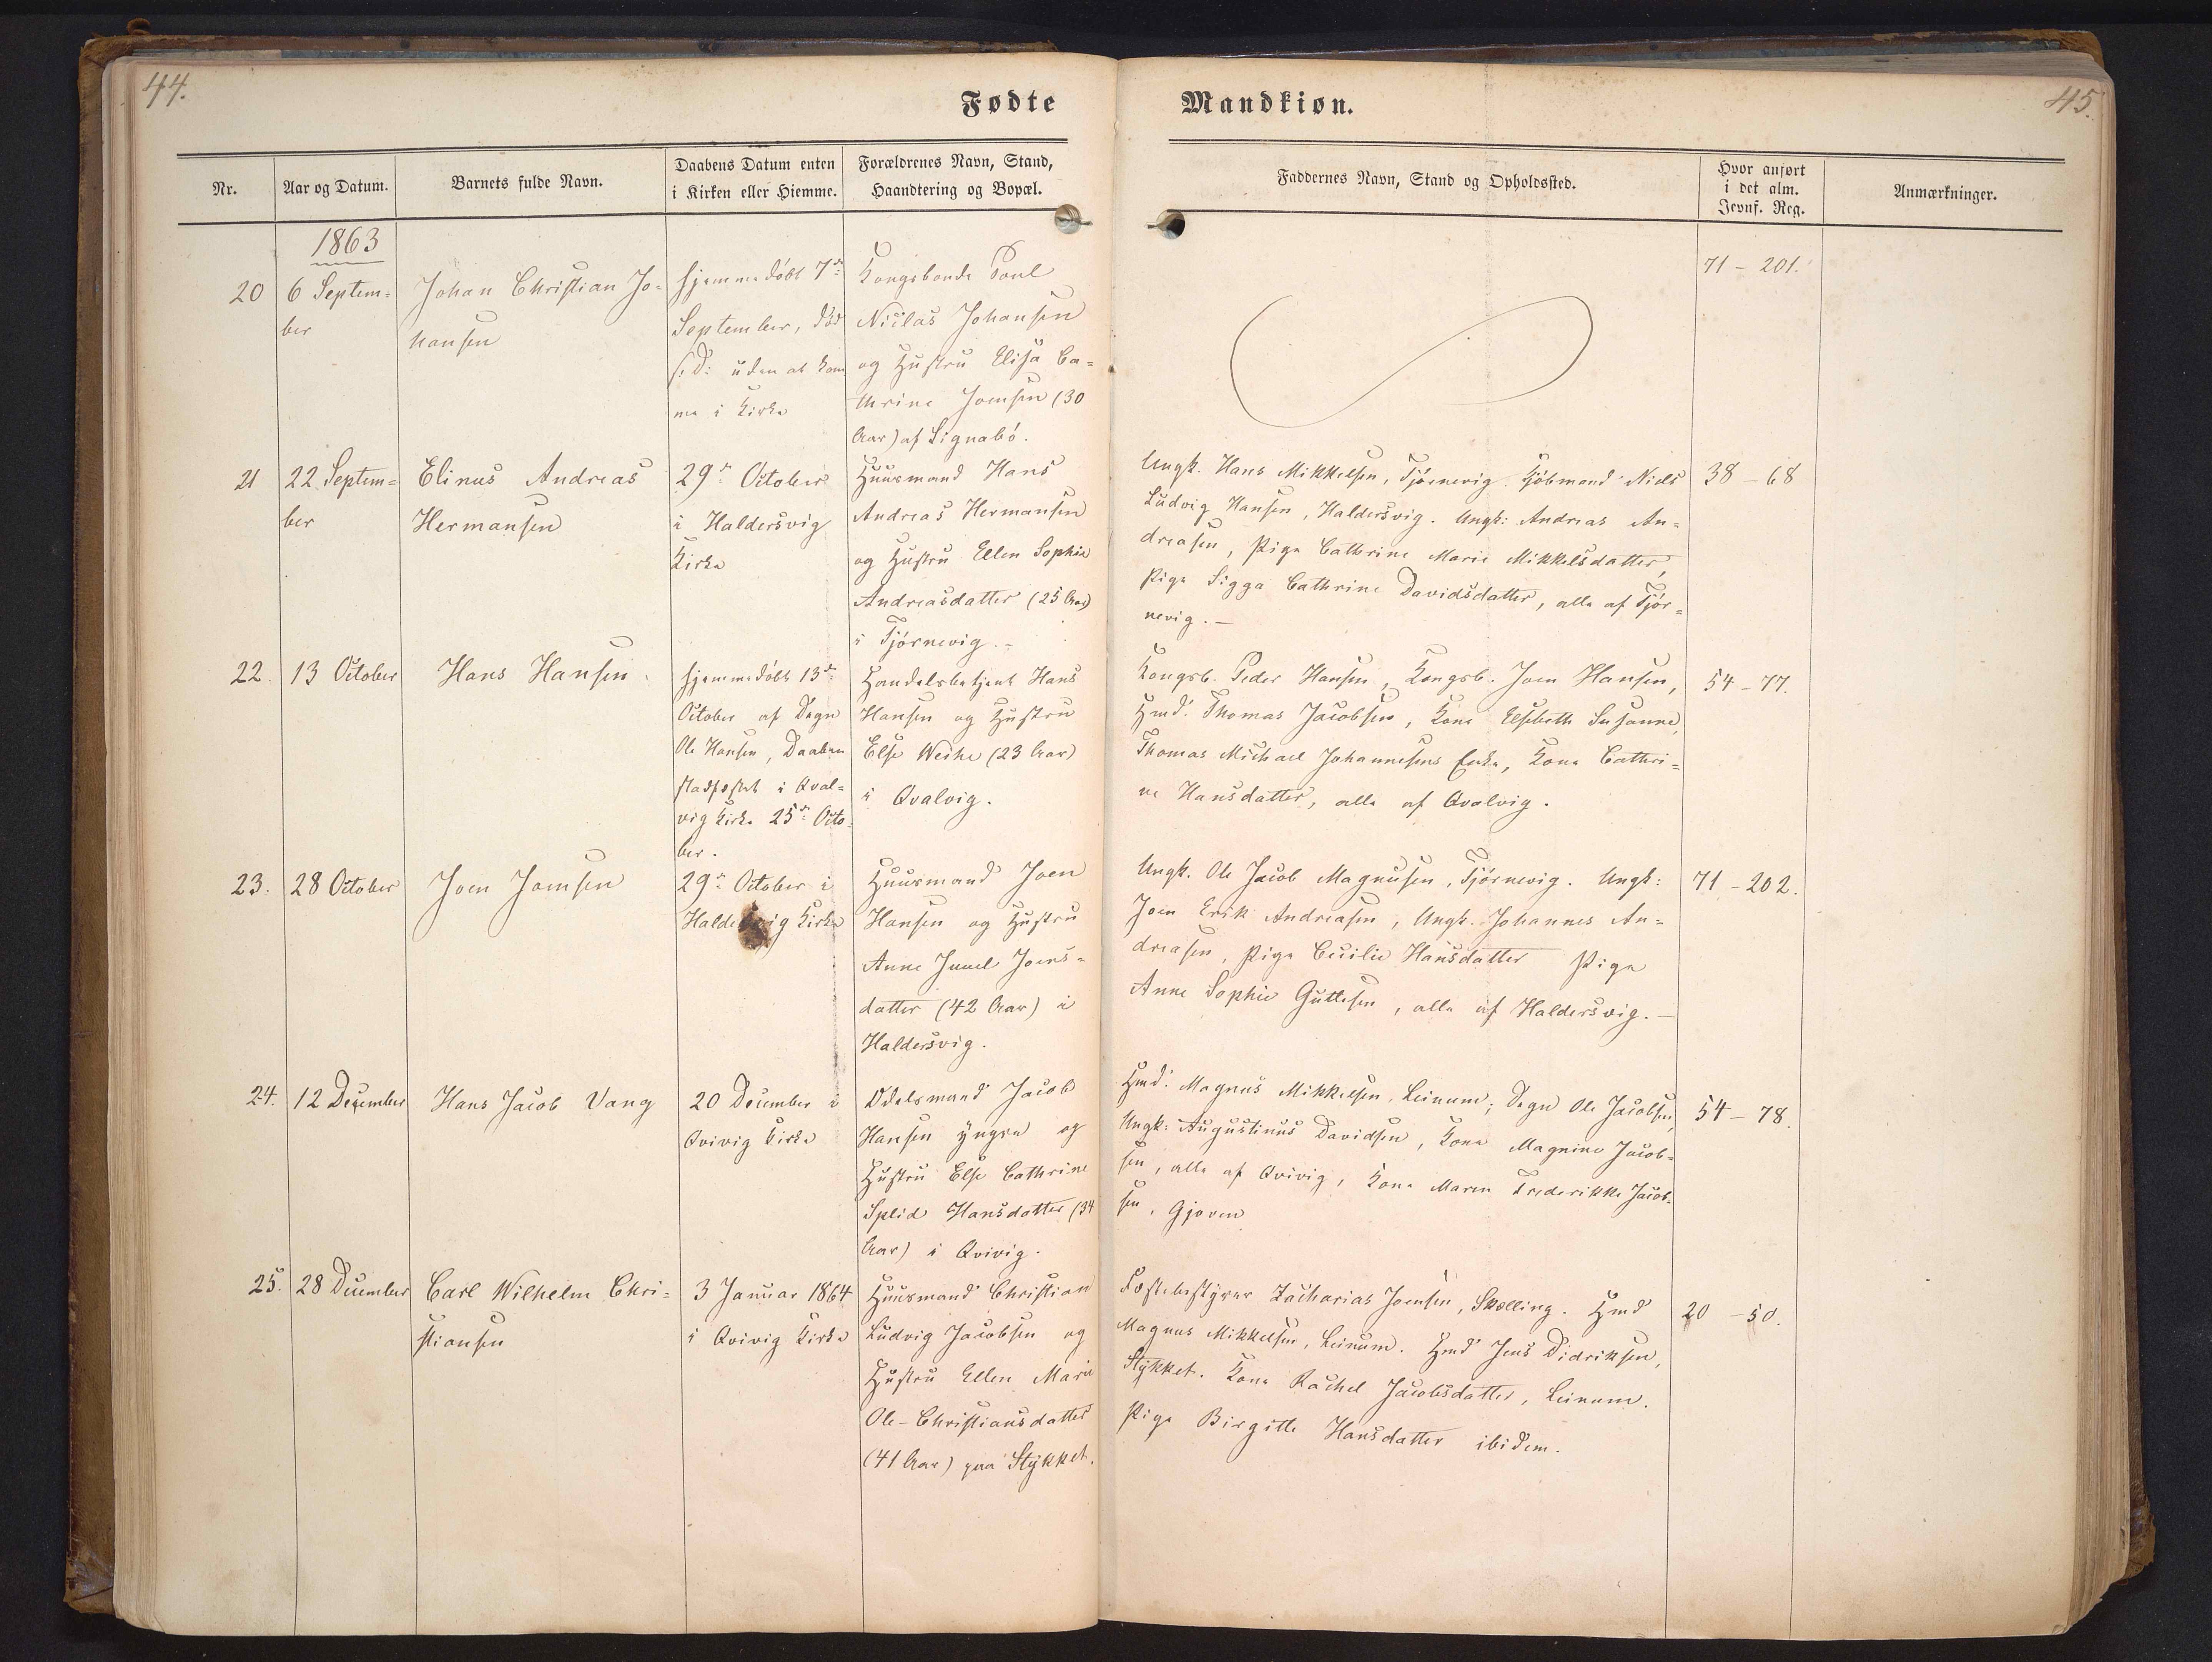 44.
45.
Fødte
Mandkiøn.
Nr.
Aar og Datum.
Barnets fulde Navn.
Daabens Datum enten
i Kirken eller Hiemme.
Forældrenes Navn, Stand,
Haandtering og Bopæl.
Faddernes Navn, Stand og Opholdssted.
Hvor anført
i det alm.
Jevnf. Reg.
Anmærkninger.
1863
20
6 Septem=
ber
Johan Christian Jo=
hansen
hjemmedöbt 7de
September, död
s. D: uden at kom
me i Kirke
Kongsbonde Poul
Niclas Johansen
og Hustru Elisa Ca=
thrine Joensen (30
Aar) af Signabö.
71 - 201.
21
22 Septem=
ber
Elinus Andreas
Hermansen
29de October
i Haldersvig
Kirke
Huusmand Hans
Andreas Hermansen
og Hustru Ellen Sophie
Andreasdatter (25 Aar)
i Tjörnevig. -
Ungk. Hans Mikkelsen, Tjörnevig. Kjöbmand Niels
Ludvig Hansen, Haldersvig. Ungk: Andreas An=
dreasen, Pige Cathrine Marie Mikkelsdatter,
Pige Sigga Cathrine Davidsdatter, alle af Tjör=
nevig. —
38 - 68
22.
13 October
Hans Hansen.
hjemmedöbt 13de
October af Degn
Ole Hansen, Daaben
stadfæstet i Qval=
vig Kirke 25de Octo
ber.
Handelsbetjent Hans
Hansen og Hustru
Else Weihe (23 Aar)
i Qvalvig.
Kongsb. Peder Hansen, Kongsb. Joen Hansen,
Hmd. Thomas Jacobsen, Kone Elsebeth Susanne,
Thomas Michael Johannesens Enke, Kone Cathri=
ne Hansdatter, alle af Qvalvig.
54 - 77.
23.
28 October
Joen Joensen
29de October i
Haldersvig Kirke
Huusmand Joen
Hansen og Hustru
Anne Joens=
datter (42 Aar) i
Haldersvig.
Ungk. Ole Jacob Magnusen, Tjörnevig. Ungk:
Joen Erik Andreasen, Ungk. Johannes An=
dreasen, Pige Cecilie Hansdatter Pige
Anne Sophie Guttesen, alle af Haldersvig. —
71 - 202.
24.
12 December
Hans Jacob Vang
20 December i
Qvivig Kirke
Odelsmand Jacob
Hansen yngre og
Hustru Else Cathrine
Splid Hansdatter (34
Aar) i Qvivig.
Hmd. Magnus Mikkelsen, Leinum; Degn Ole Jacobsen,
Ungk: Augustinus Davidsen, Kone Magnine Jacob=
sen, alle af Qvivig, Kone Maren Frederikke Jacob=
sen, Gjoven
54 - 78.
25.
28 December
Carl Wilhelm Chri=
stiansen
3 Januar 1864
i Qvivig Kirke
Huusmand Christian
Ludvig Jacobsen og
Hustru Ellen Marie
Ole-Christiansdatter
(41 Aar) paa Stykket.
Fæstebestyrer Zacharias Joensen, Skælling. Hmd
Magnus Mikkelsen, Leinum. Hmd Jens Didriksen,
Stykket. Kone Rachel Jacobsdatter, Leinum.
Pige Birgitte Hansdatter ibidem.
20 - 50.